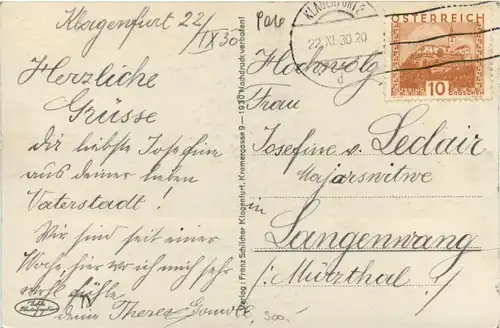 Klagenfurt 22/
IX 30
Herzliche
Grüsse
dir liebste Josefine
aus deiner lieben
Vaterstadt!
Wir sind seit einer
Woche, hier wo ich mich sehr
wohl fühle
deine Therese
Verlag: Franz Schilcher Klagenfurt, Kramergasse 9 — 1930 Nachdruck verboten!
KLAGENFURT 2
22.XI.30.20
d
ÖSTERREICH
10
GROSCHEN
Hochwolg
Frau
Josefine v. Ledair
Majorswitwe
in
Langenwang
Mürzthal!
300.-